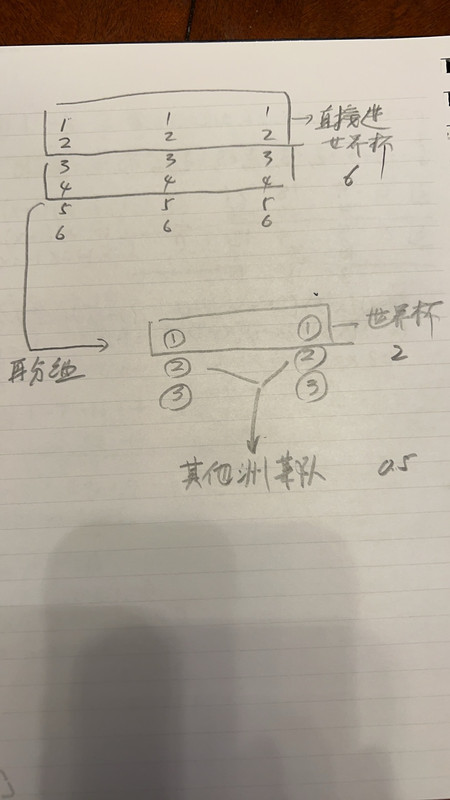 1 1 1 → 直接进
2 2 2 世界杯
3 3 3
4 4 4 6
5 5 5
6 6 6
① ① 世界杯
② ② 2
再分组
③ ③
其他洲某队 0.5